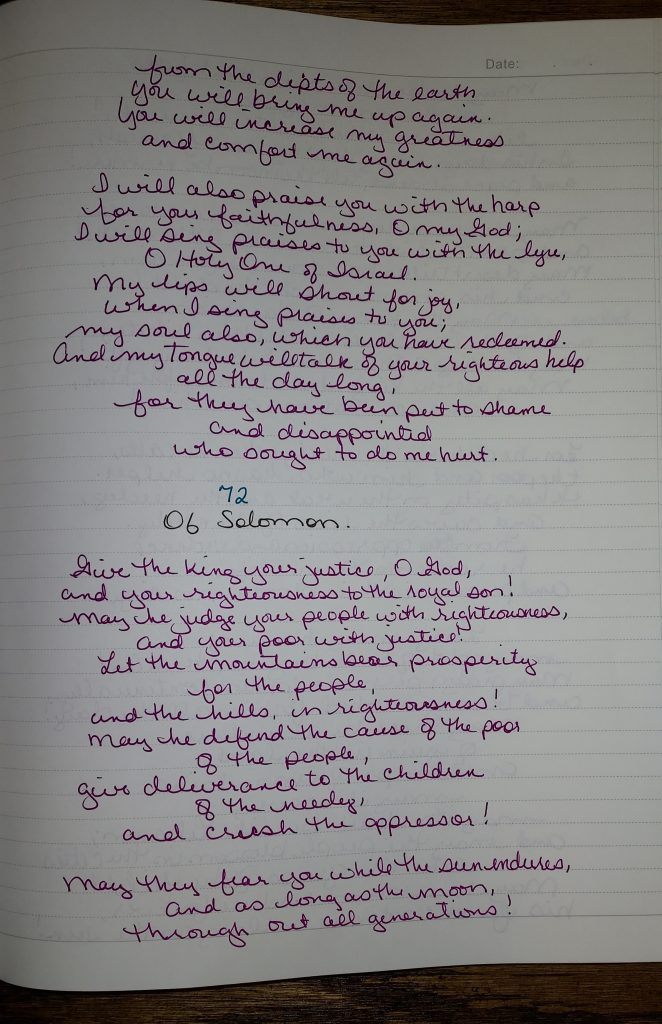 Date:
from the depts of the earth
you will bring me up again.
You will increase my greatness
and comfort me again.
I will also praise you with the harp
for your faithfulness, O my God;
I will sing praises to you with the lyre,
O Holy One of Israel.
My lips will shout for joy,
when I sing praises to you;
my soul also, which you have redeemed.
And my tongue will talk of your righteous help
all the day long,
for they have been put to shame
and disappointed
who sought to do me hurt.
72
Of Solomon.
Give the king your justice, O God,
and your righteousness to the royal son!
May he judge your people with righteousness,
and your poor with justice!
Let the mountains bear prosperity
for the people,
and the hills, in righteousness!
May he defend the cause of the poor
of the people,
give deliverance to the children
of the needy,
and crush the oppressor!
May they fear you while the sun endures,
and as long as the moon,
through out all generations!